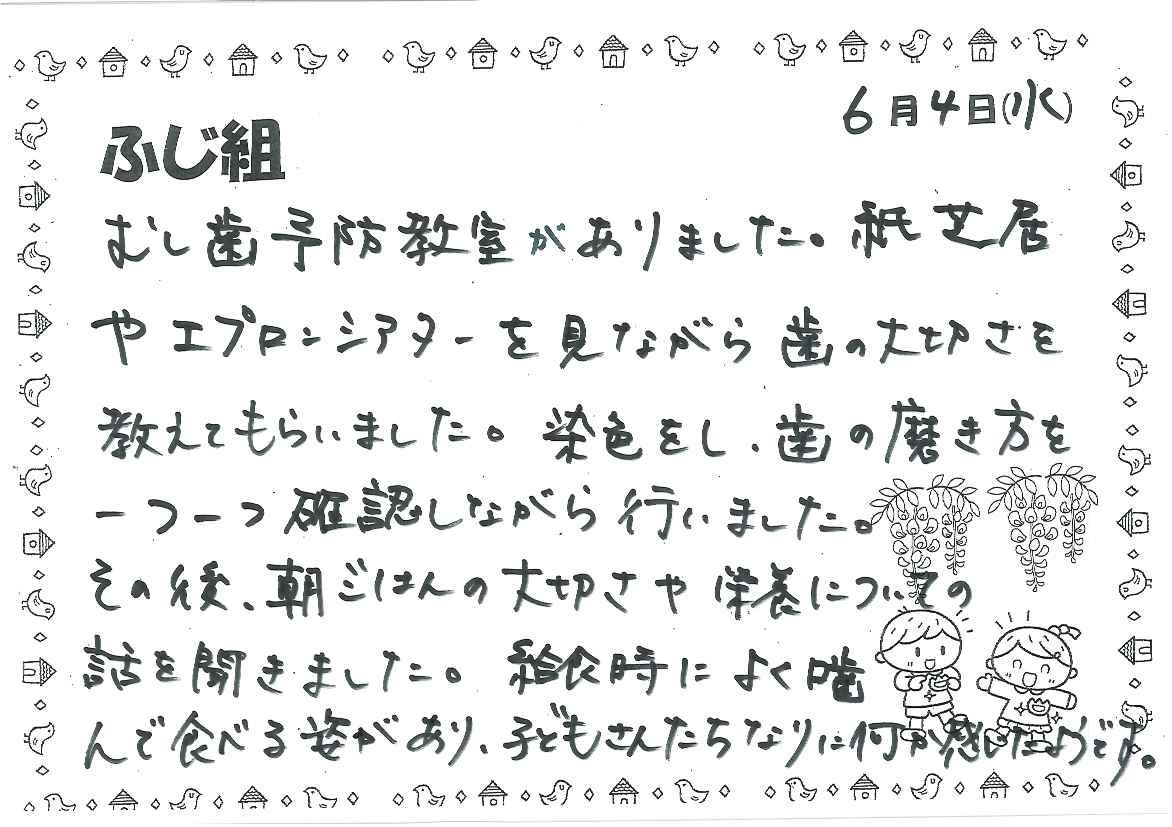 6月4日(水)
ふじ組
むし歯予防教室がありました。紙芝居
やエプロンシアターを見ながら歯の大切さを
教えてもらいました。染色をし、歯の磨き方を
一つ一つ確認しながら行いました。
その後、朝ごはんの大切さや栄養についての
話を聞きました。給食時によく噛
んで食べる姿があり、子どもさんたちなりに何か感じたようです。